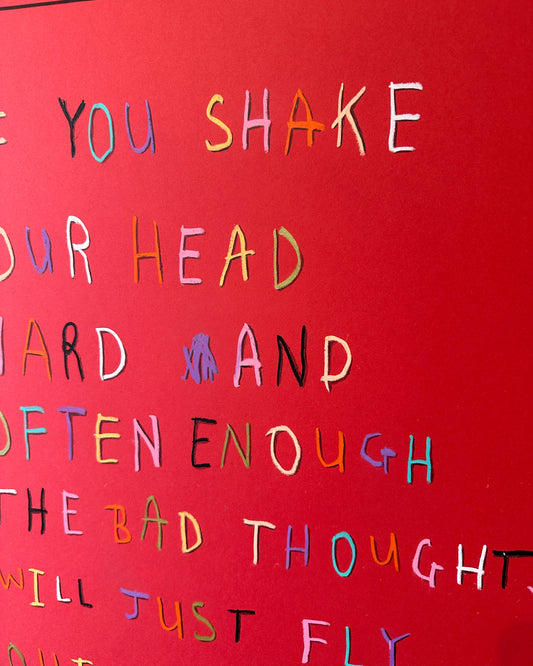 YOU SHAKE
OUR HEAD
ARD AND
OFTEN ENOUGH
THE BAD THOUGHT
WILL JUST FLY
OUT